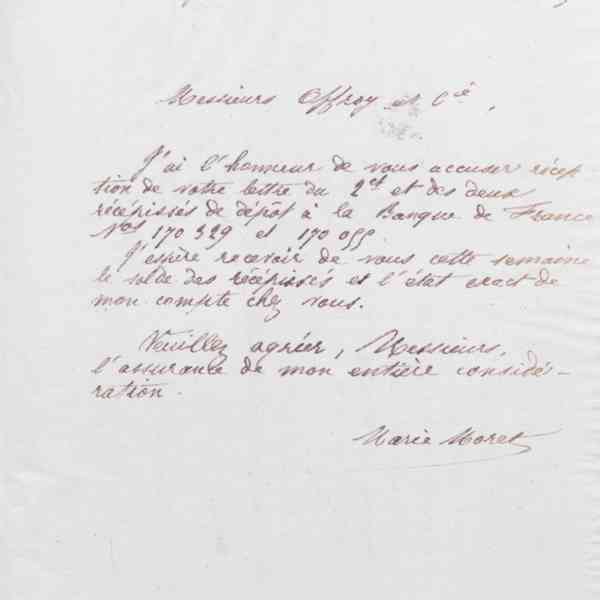 Messieurs Offroy et Cie,
J'ai l'honneur de vous accuser récep
tion de votre lettre du 2 ct et des deux
récépissés de dépôt à la Banque de France
Nos 170 329 et 170 055.
J'espère recevoir de vous cette semaine
le solde des récépissés et l'état exact de
mon compte chez vous.
Veuillez agréer, Messieurs,
l'assurance de mon entière considé-
ration.
Marie Moret